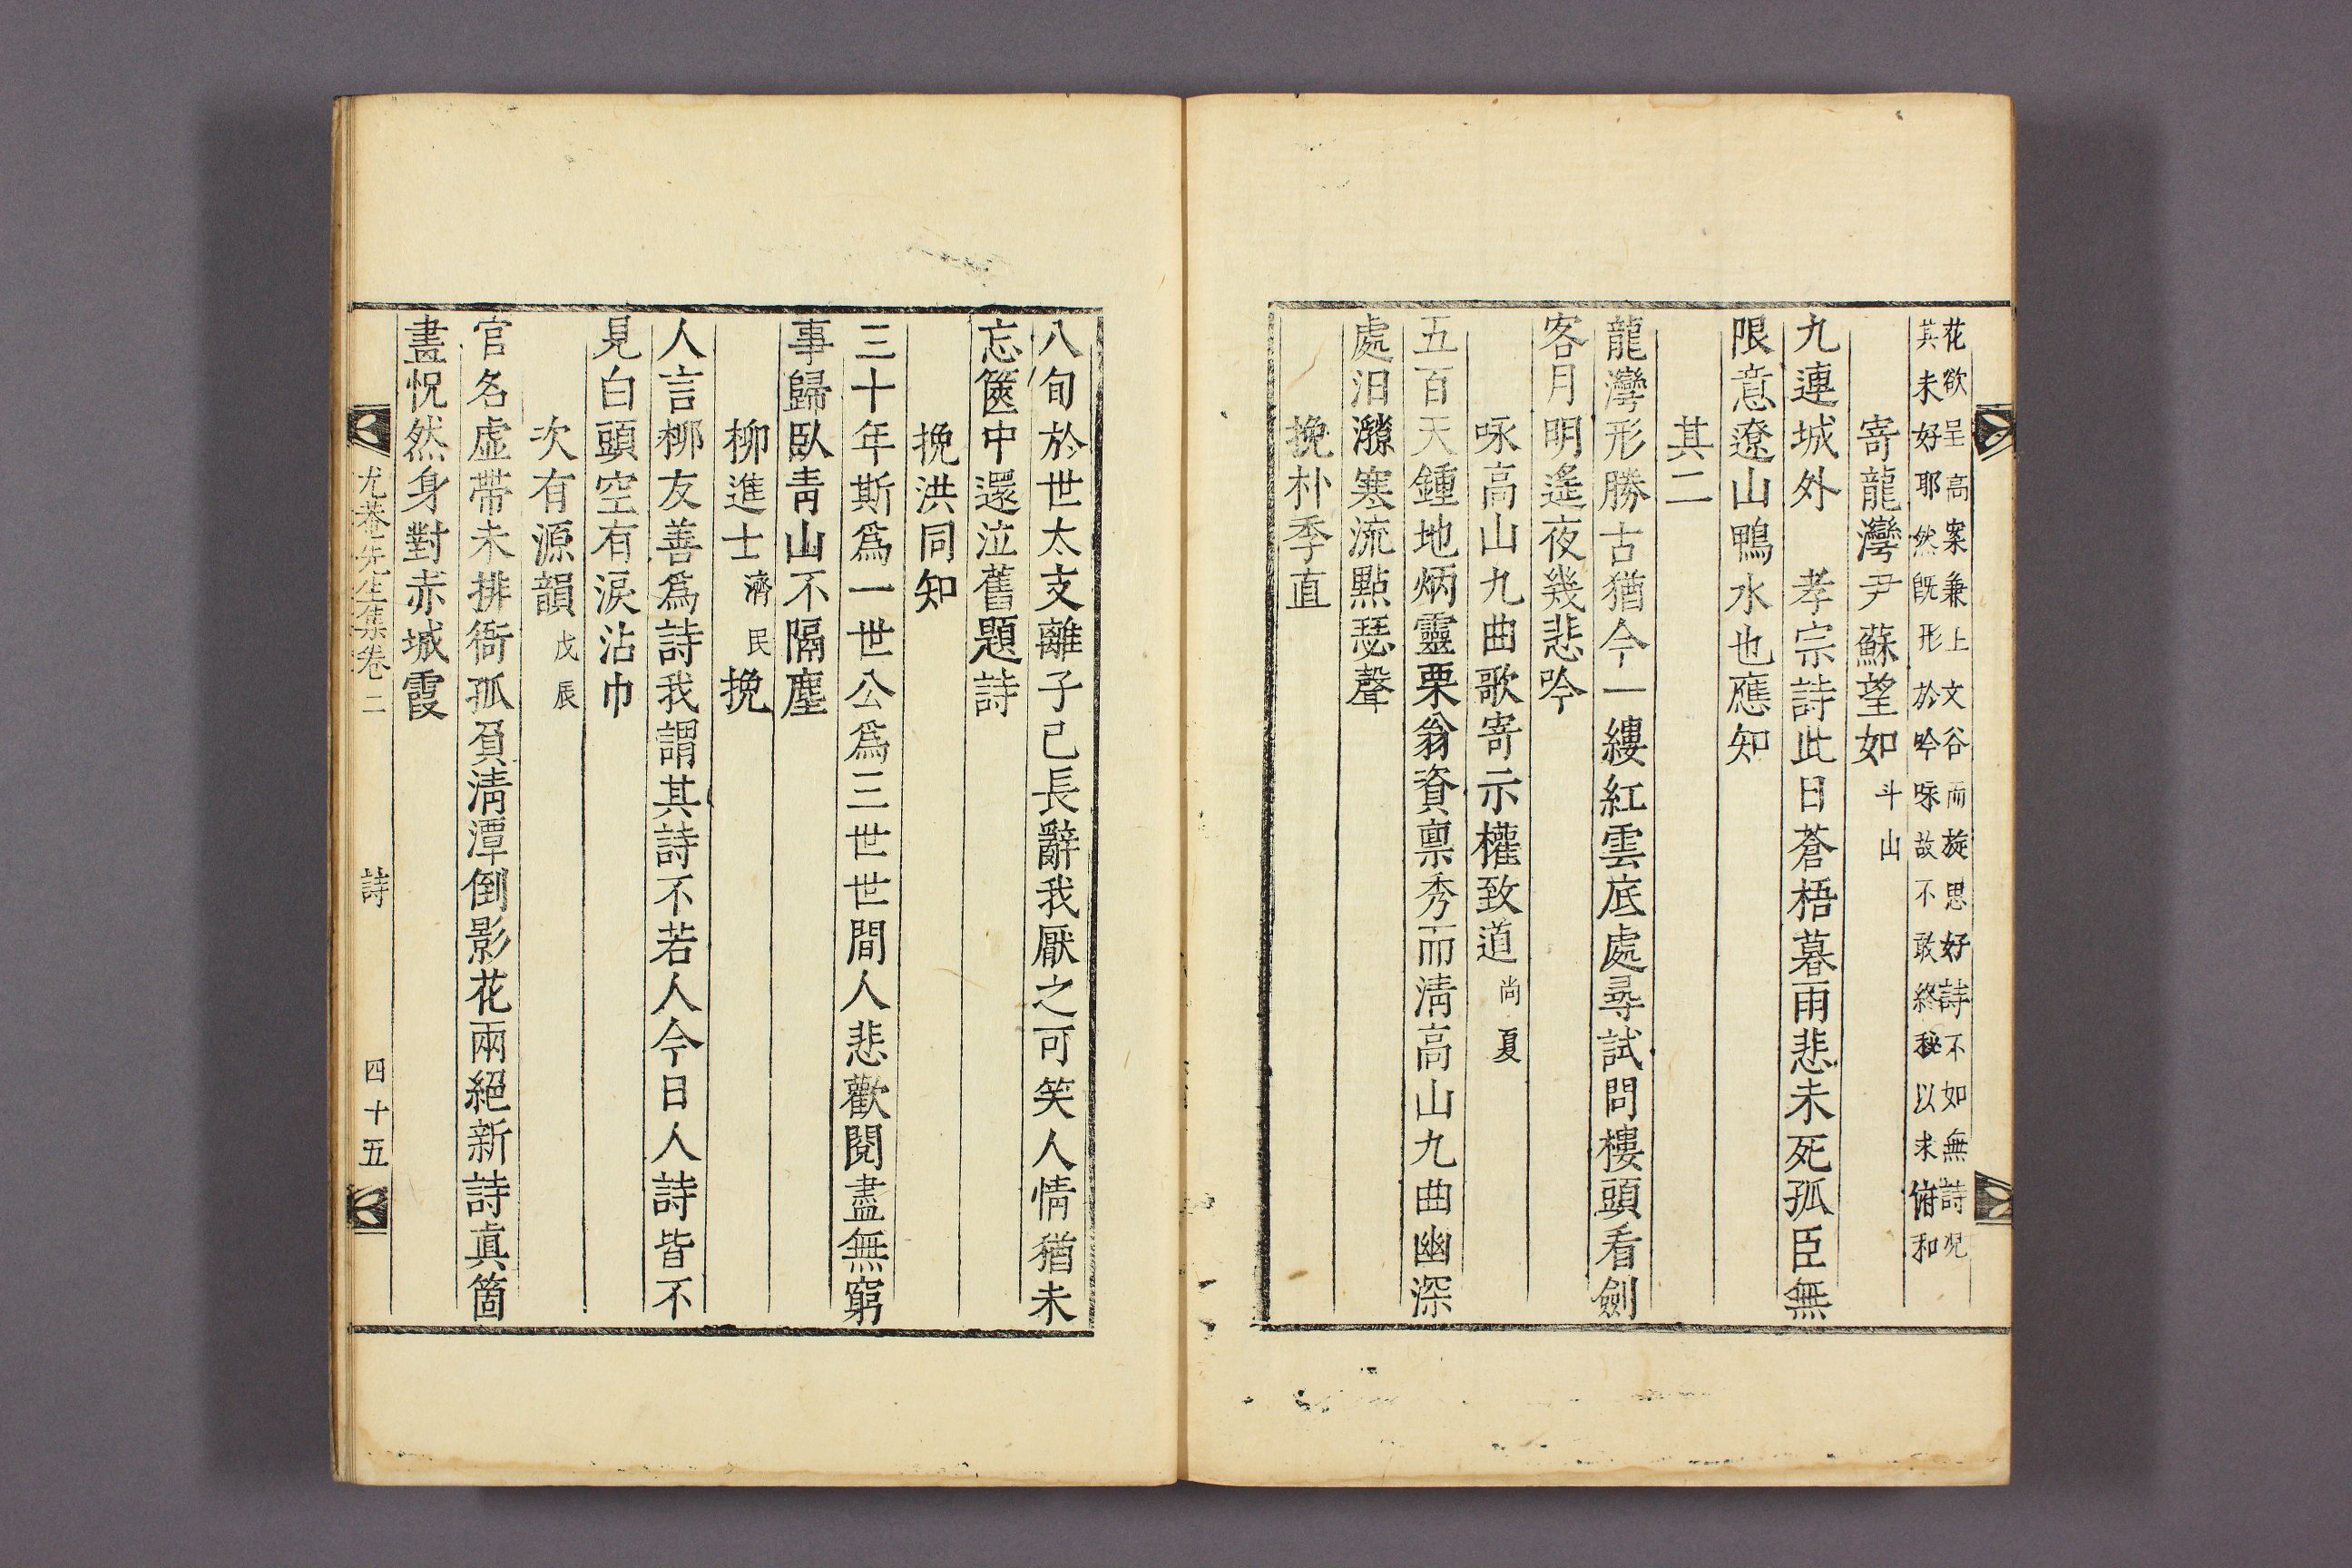 花欲呈高案兼上文谷而旋思好詩不如無詩況
其未好耶然旣形於吟咏故不敢終秘以求俯和
寄龍灣尹蘇望如斗山
九連城外　孝宗詩此日蒼梧暮雨悲未死孤臣無
限意遼山鴨水也應知
其二
龍灣形勝古猶今一縷紅雲底處尋試問樓頭看劍
客月明遙夜幾悲吟
咏高山九曲歌寄示權致道尙夏
五百天鍾地炳靈栗翁資禀秀而淸高山九曲幽深
處汨㶁寒流點瑟聲
挽朴季直
八旬於世太支離子已長辭我厭之可笑人情猶未
忘篋中還泣舊題詩
挽洪同知
三十年斯爲一世公爲三世世間人悲歡閱盡無窮
事歸臥靑山不隔塵
柳進士濟民挽
人言柳友善爲詩我謂其詩不若人今日人詩皆不
見白頭空有淚沾巾
次有源韻戊辰
官名虛帶未排衙孤負淸潭倒影花兩絕新詩眞箇
畫怳然身對赤城霞
尤菴先生集卷二　詩　四十五